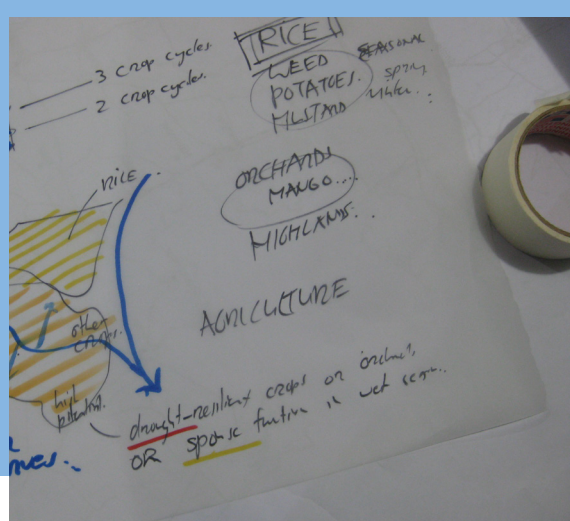 3 crop cycles.
2 crop cycles.
RICE
WEED
POTATOES.
MUSTARD
SEASONAL
spring
winter..
rice
ORCHARDS
MANGO....
HIGHLANDS..
AGRICULTURE
other
crops.
high
potential.
drought-resilient crops or orchards
OR sponse function in wet season..